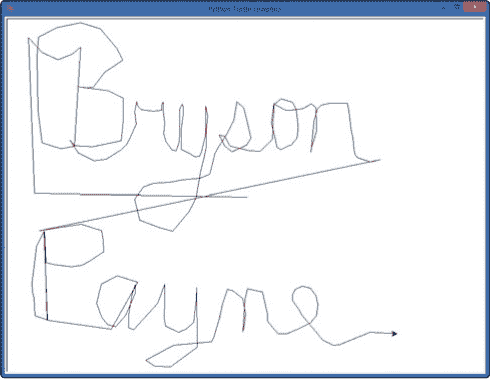 Python Turtle Graphics
Bryson
Payne